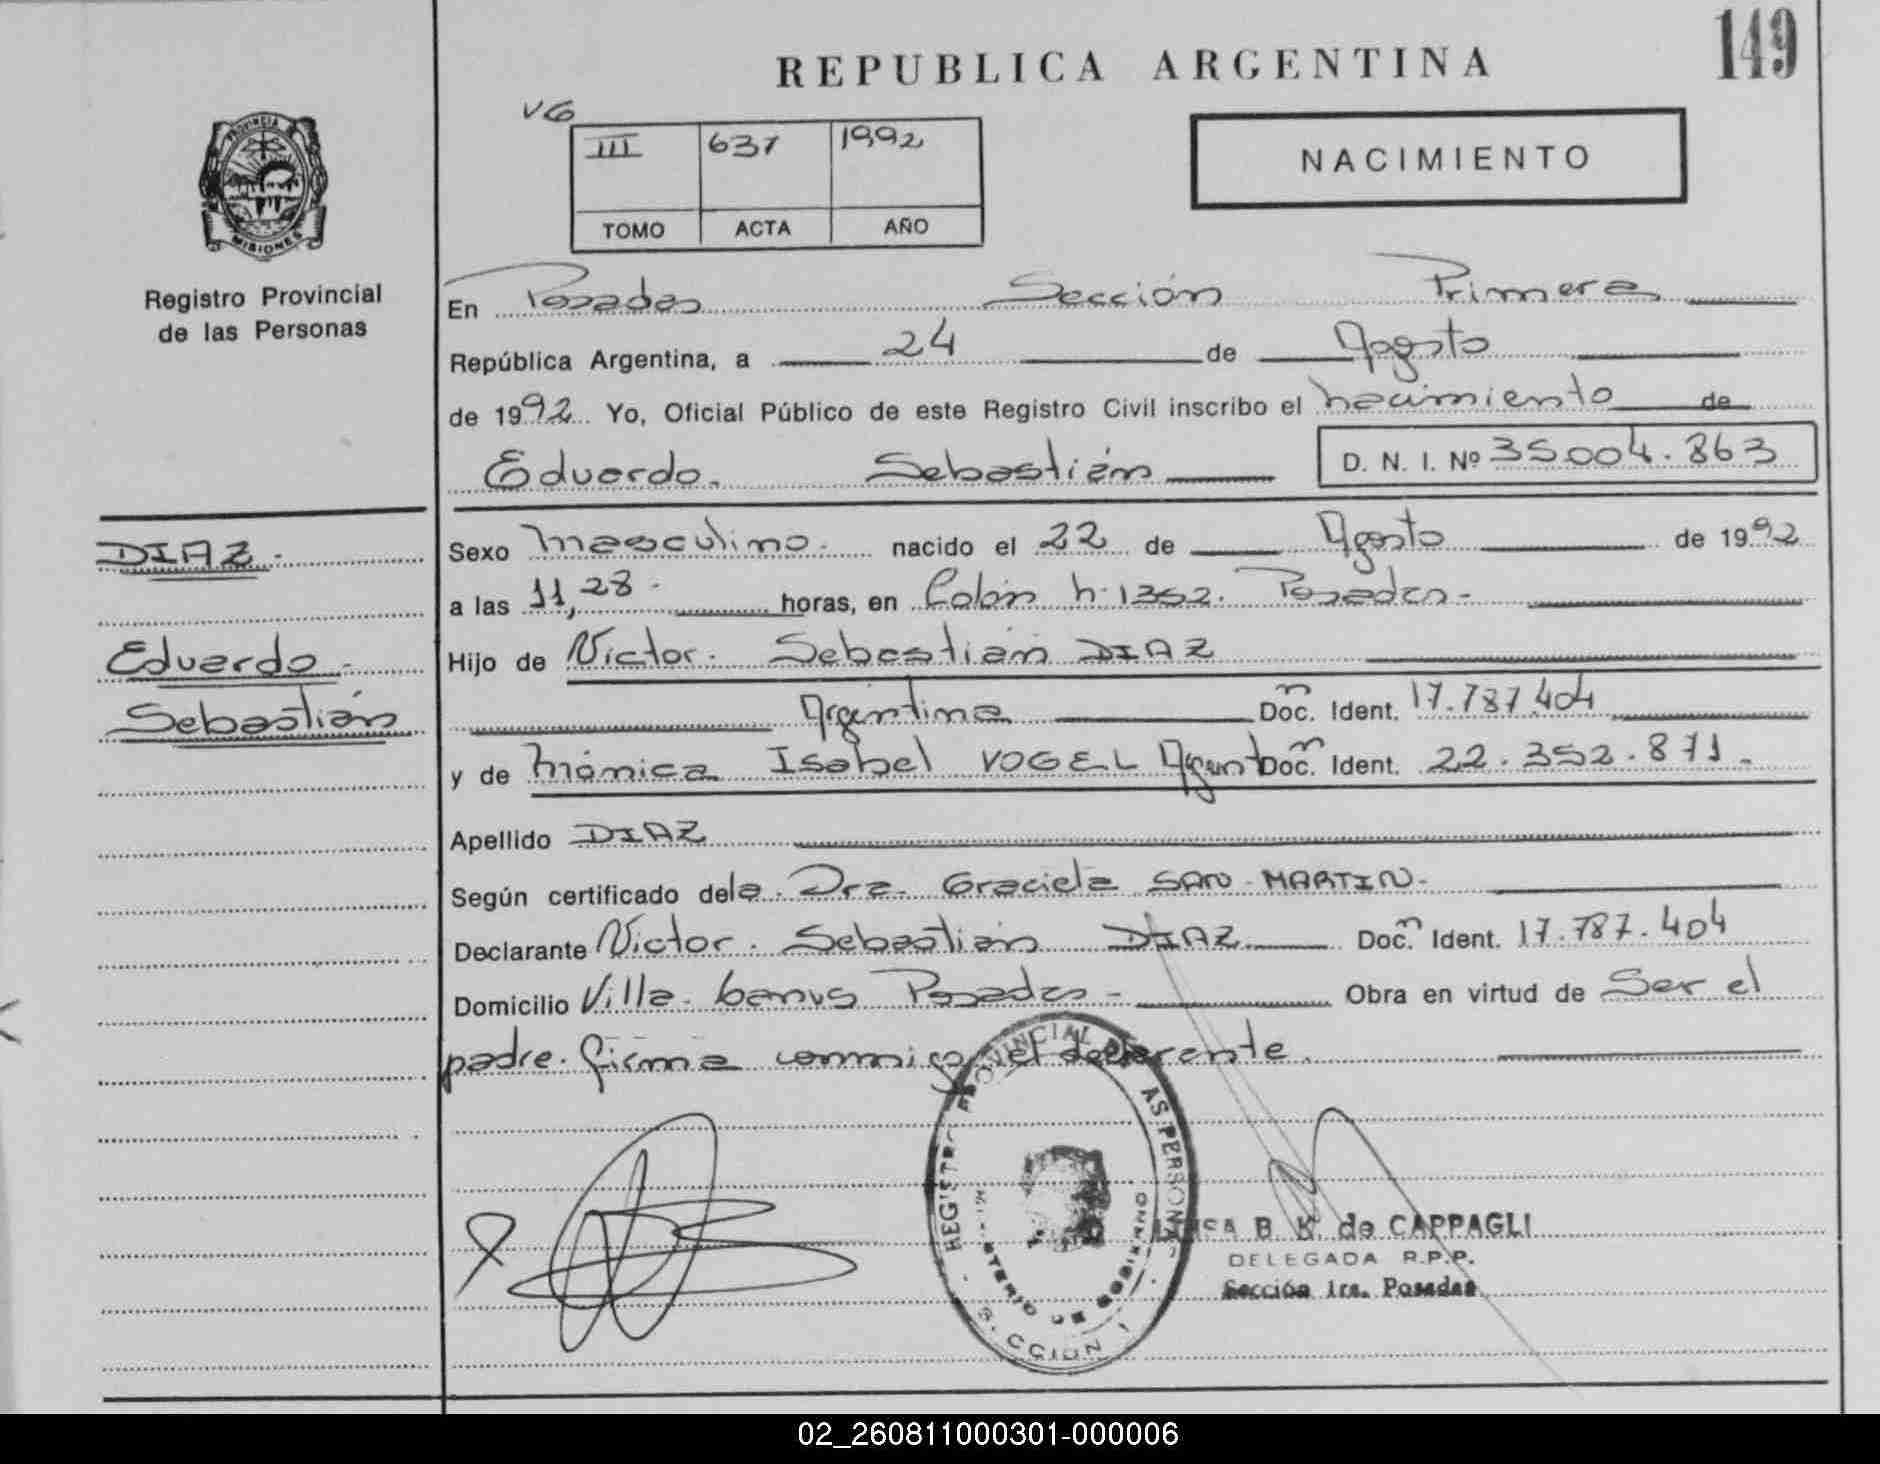 149
REPUBLICA ARGENTINA
VG
III 637 1992
TOMO ACTA AÑO
NACIMIENTO
PROVINCIA
MISIONES
Registro Provincial
de las Personas
En Posadas Sección Primera
República Argentina, a 24 de Agosto
de 1992 Yo, Oficial Público de este Registro Civil inscribo el nacimiento de
Eduardo. Sebastián D. N. I. Nº 35.004.863
DIAZ.
Eduardo.
Sebastián
Sexo masculino. nacido el 22 de Agosto de 1992
a las 11,28. horas, en Colón n. 1352. Posadas-
Hijo de Victor. Sebastián DIAZ
Argentina Doc. Ident. 17.787.404
y de Mónica Isabel VOGEL Argent Doc. Ident. 22.352.871.
Apellido DIAZ
Según certificado de la. Dra. Graciela SAN MARTIN.
Declarante Victor. Sebastián DIAZ Doc. Ident. 17.787.404
Domicilio Villa. Lanus Posadas- Obra en virtud de Ser el
padre. firma conmigo el declarante.
REGISTRO PROVINCIAL AS PERSONAS
MINISTERIO DE GOBIERNO
SECCION 1
B. K. de CAPPAGLI
DELEGADA R.P.P.
Sección 1ra. Posadas
02_260811000301-000006